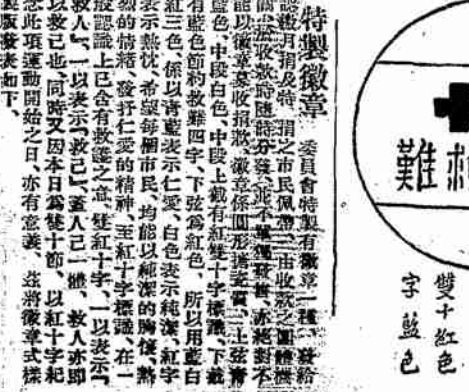 特製徽章　委員會特製有徽章一種、發給
認繳月捐及特　捐之市民佩帶、二市收款之團體機
收款時隨時分發、並不單獨發售、亦絕對不
能以徽章募收捐款、徽章係圓形搪瓷質、上弦青
藍色、中段白色、中段上戴有紅雙十字標識、下戴
有藍色節約救難四字、下弦為紅色、所以用藍白
紅三色、係以青藍表示仁愛、白色表示純潔、紅字
表示熱忱、希望每個市民、均能以純潔的胸懷、熱
烈的情緒、發抒仁愛的精神、至紅十字標識、在一
般認識上已含有救護之意、雙紅十字、一以表示「
救人」、一以表示「救己」、蓋人己一體、救人亦即
以救己也、同時又因本日為雙十節、以紅十字紀
念此項運動開始之日、亦有意義、茲將徽章式樣
製版發表如下、
難
雙十紅色
字藍色